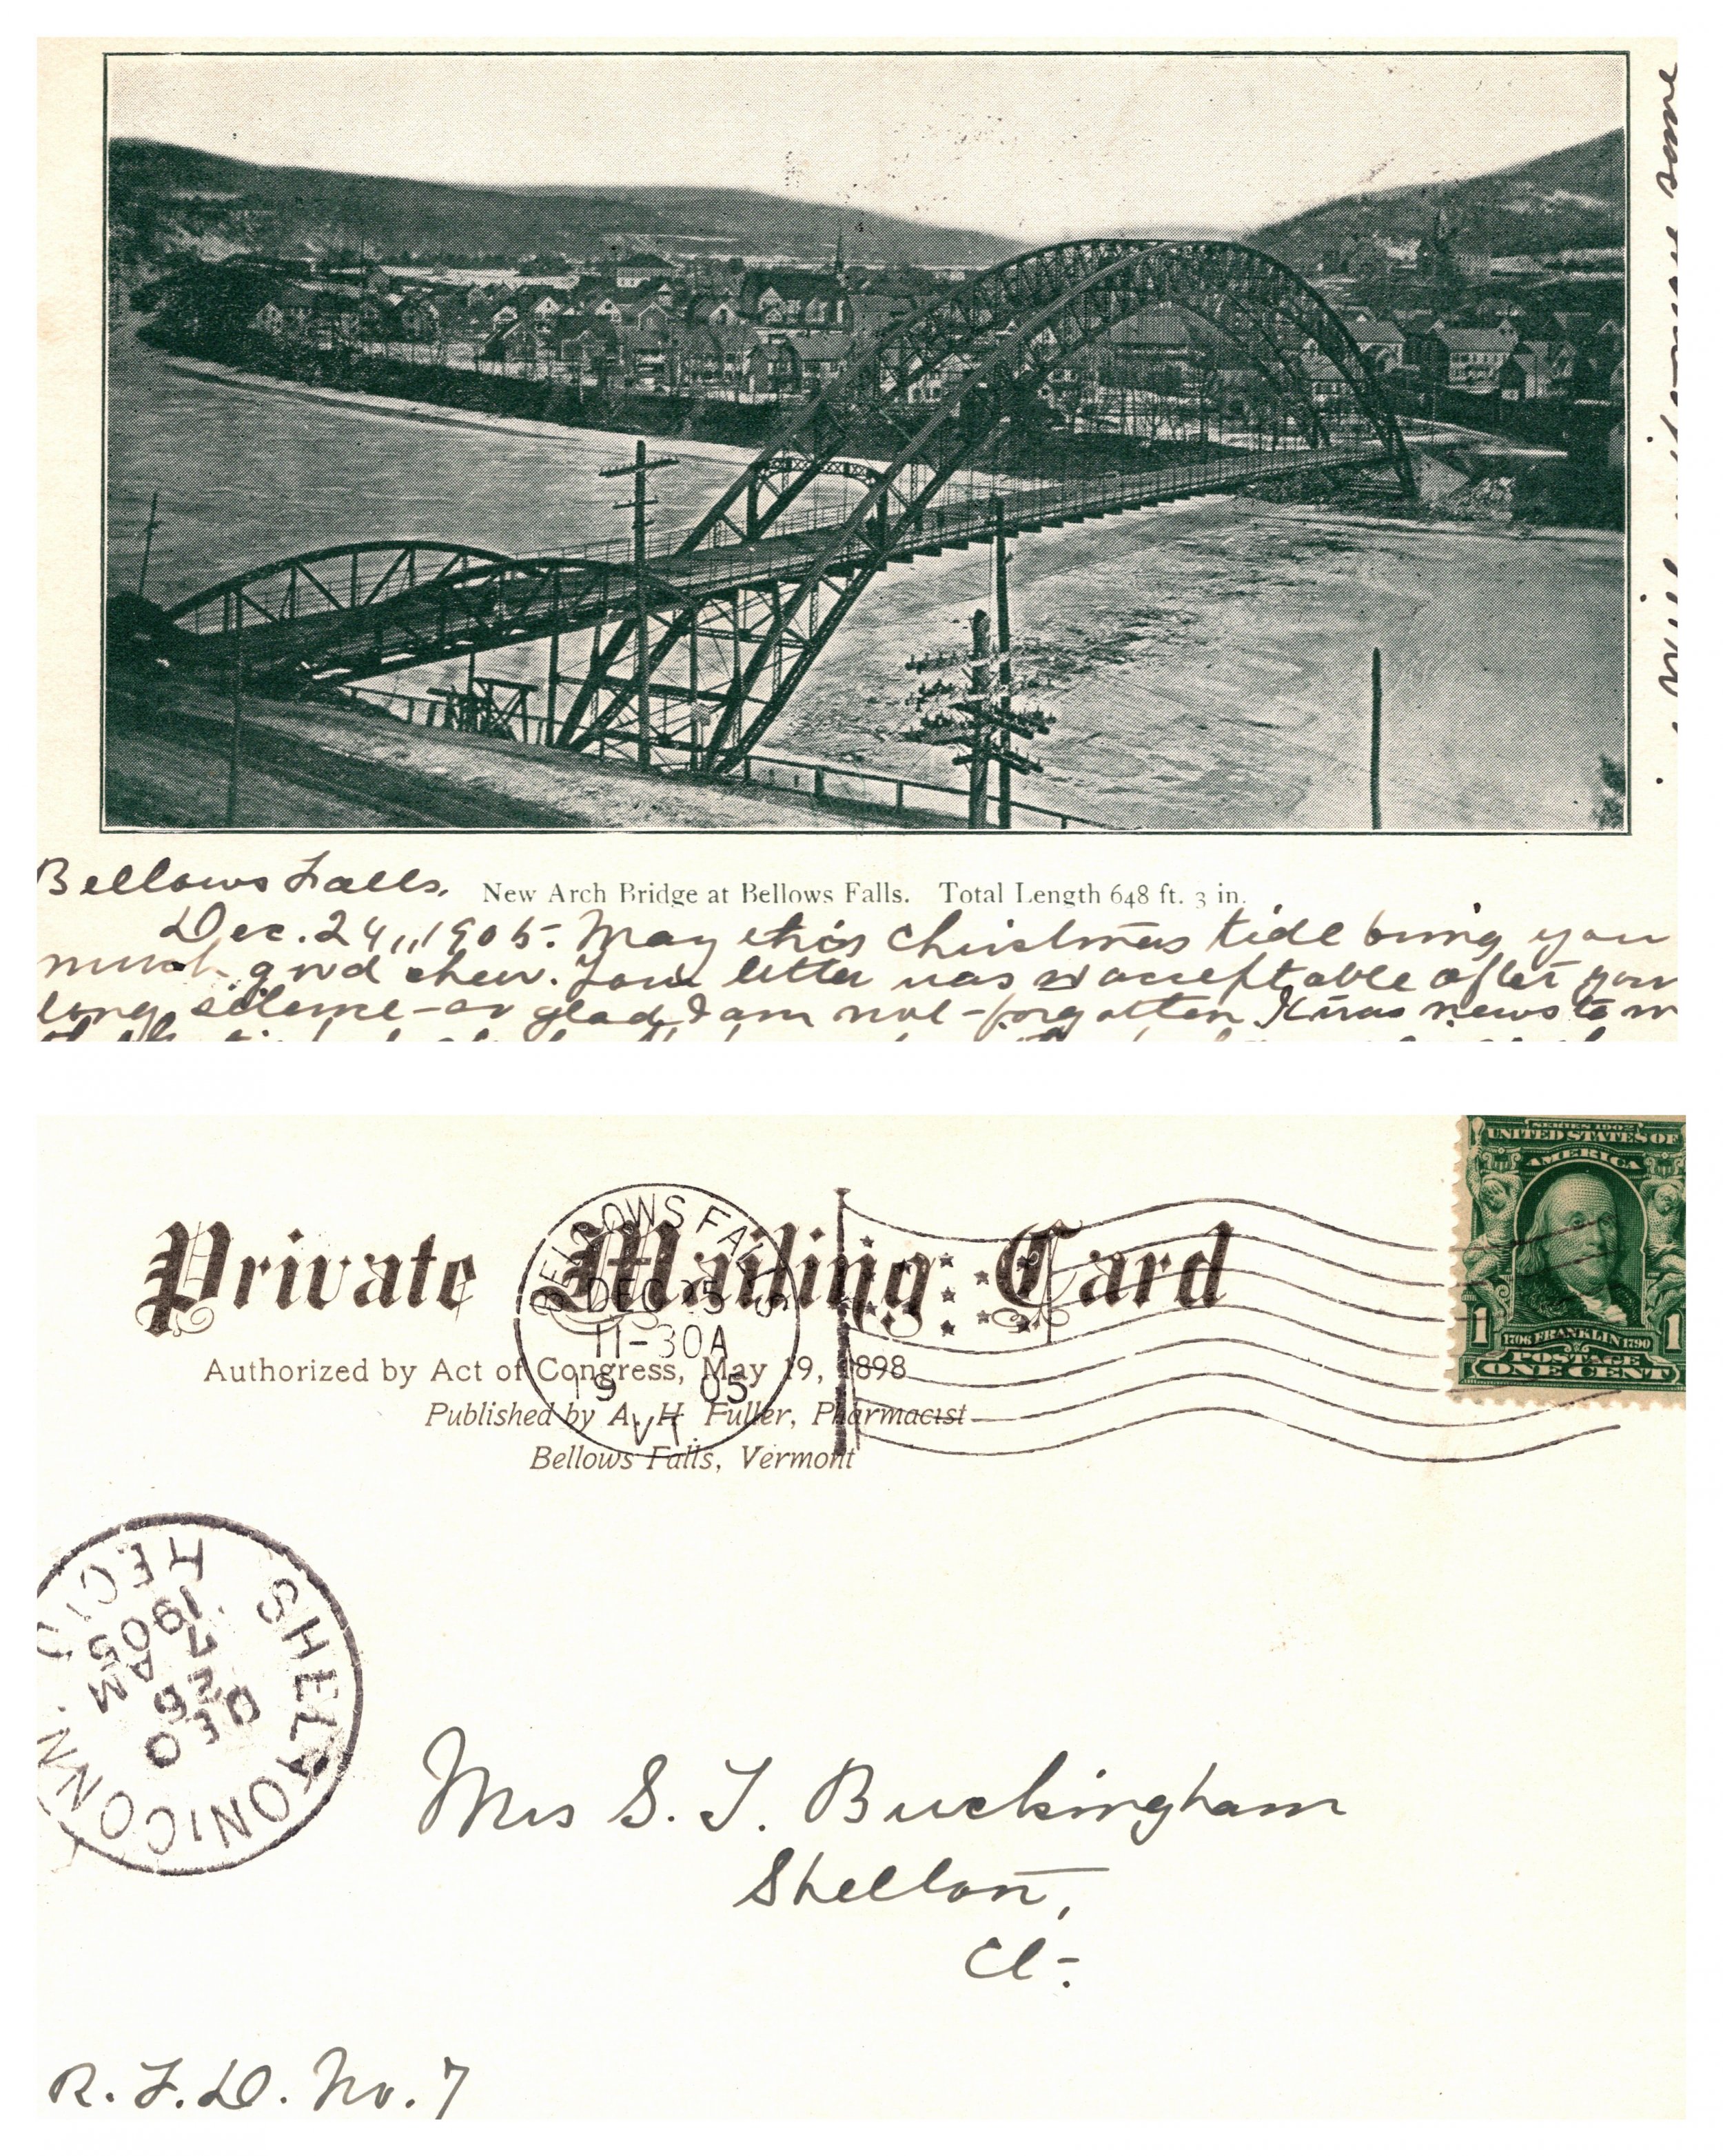 some
Bellows Falls.
New Arch Bridge at Bellows Falls. Total Length 648 ft. 3 in.
Dec. 24, 1905. May this Christmas tide bring you
much good cheer. Your letter was so acceptable after your
long silence - so glad I am not forgotten. It was news to m
SERIES 1902
UNITED STATES OF
AMERICA
1
1706 FRANKLIN 1790
1
POSTAGE
ONE CENT
Private Mailing Card
BELLOWS FALLS
DEC 25
11-30A
19 05
VT.
Authorized by Act of Congress, May 19, 1898
Published by A. H. Fuller, Pharmacist
Bellows Falls, Vermont
SHELTON CONN.
REC'D.
DEC
26
7 AM
1905
Mrs S. T. Buckingham
Shelton,
Ct.
R.F.D. No. 7